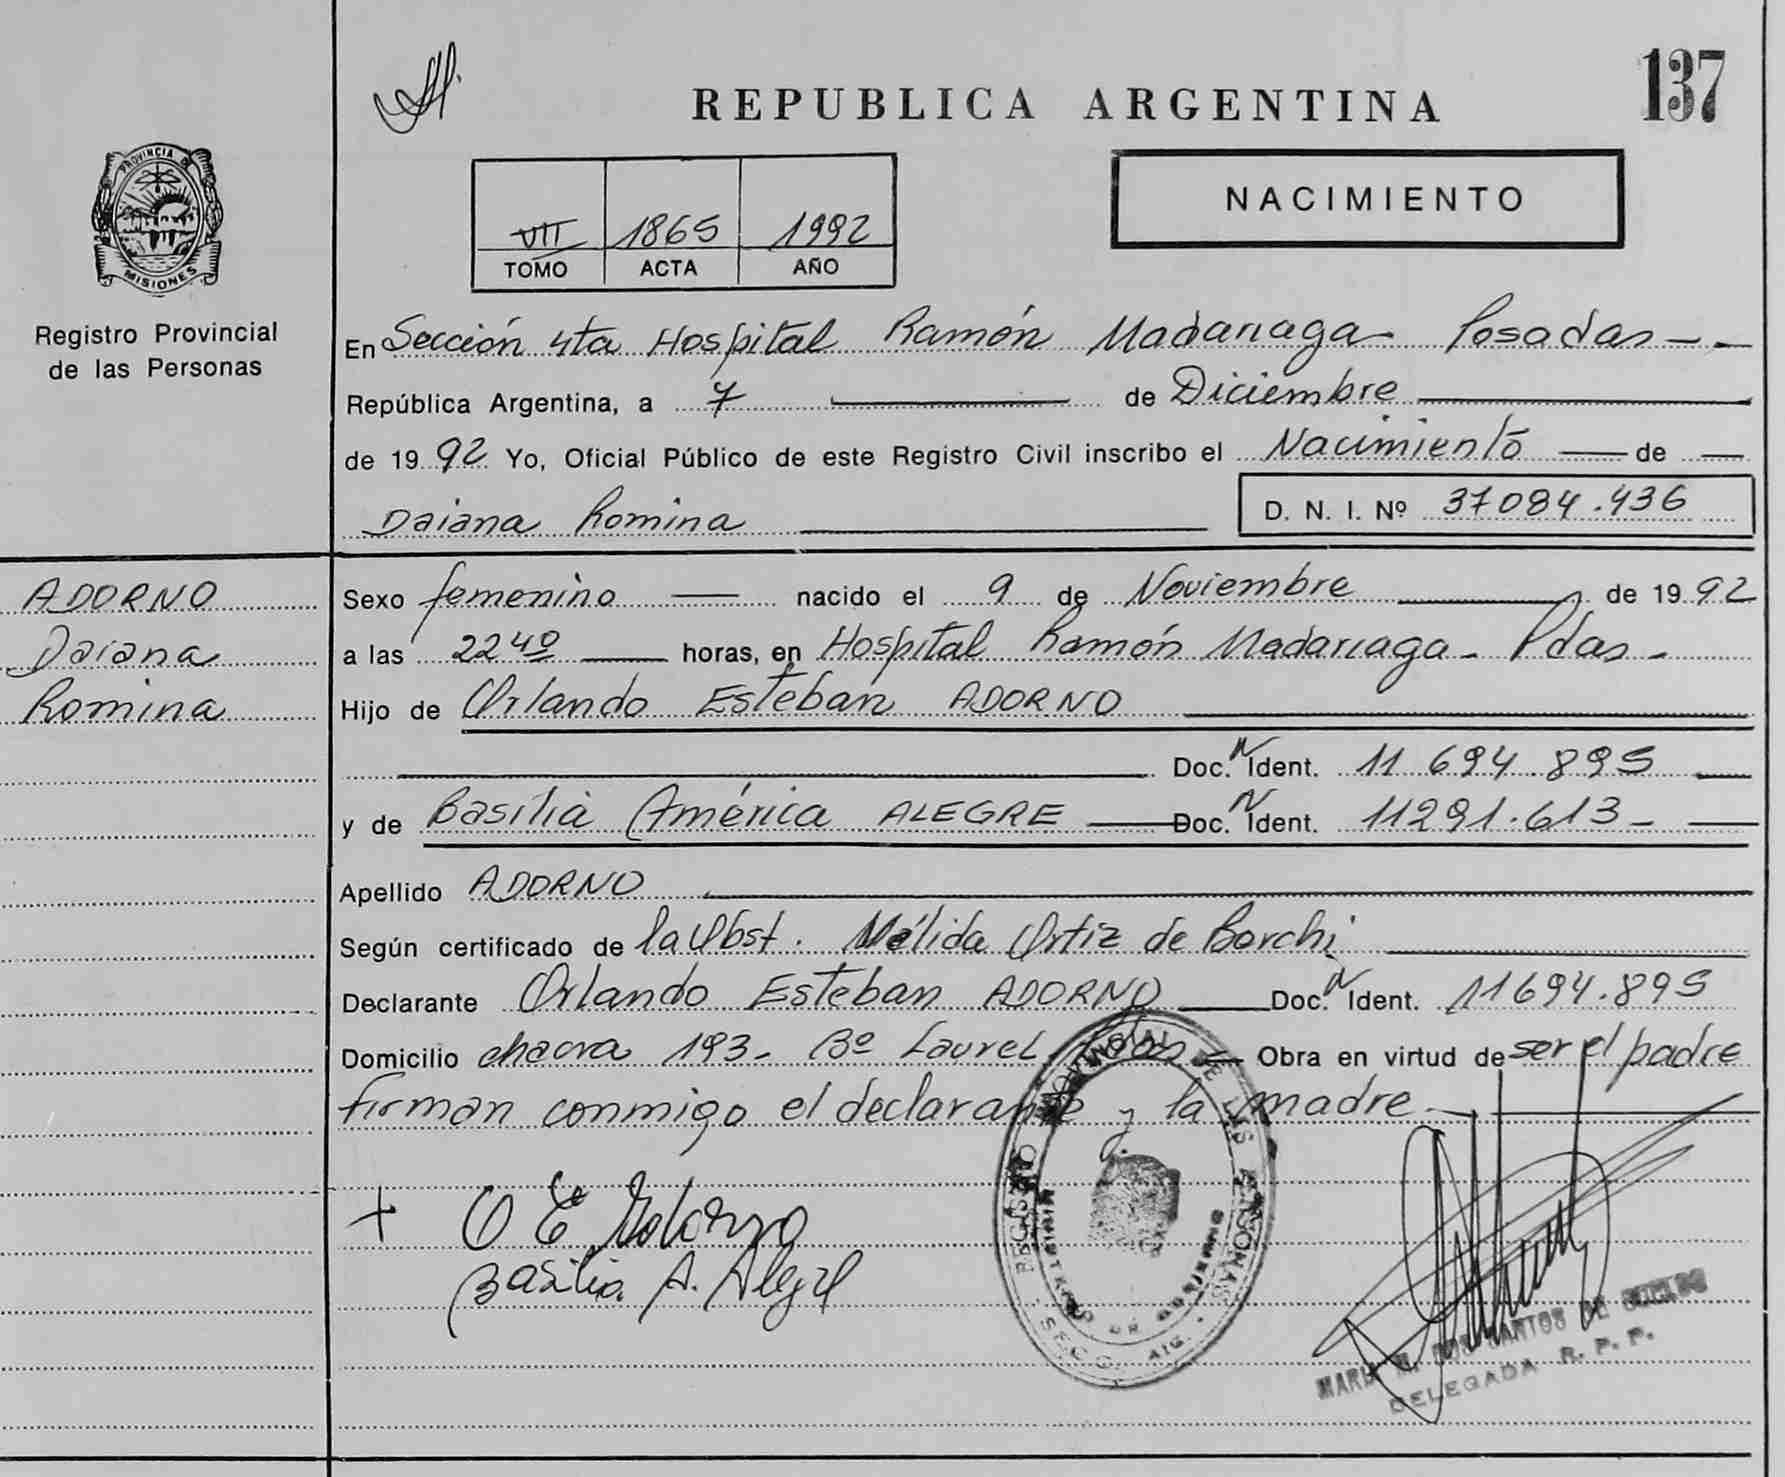 137
REPUBLICA ARGENTINA
NACIMIENTO
VII 1865 1992
TOMO ACTA AÑO
PROVINCIA DE
MISIONES
Registro Provincial
de las Personas
En Sección 4ta Hospital Ramón Madariaga - Posadas - -
República Argentina, a 7 de Diciembre
de 1992 Yo, Oficial Público de este Registro Civil inscribo el Nacimiento de
Daiana Romina D. N. I. Nº 37084.436
ADORNO
Daiana
Romina
Sexo femenino nacido el 9 de Noviembre de 1992
a las 22 40 horas, en Hospital Ramón Madariaga - Pdas -
Hijo de Orlando Esteban ADORNO
Doc. N Ident. 11 694.895
y de Basilia América ALEGRE Doc. N Ident. 11291.613 -
Apellido ADORNO
Según certificado de la Obst. Mélida Ortiz de Borchi
Declarante Orlando Esteban ADORNO Doc. N Ident. 11694.895
Domicilio chacra 193 - Bº Laurel - Pdas - Obra en virtud de ser el padre
firman conmigo el declarante y la madre.
+ O E Adorno
Basilia A. Alegre
REGISTRO PROVINCIAL DE LAS PERSONAS
MINISTERIO DE GOBIERNO
DOS SANTOS DE
DELEGADA R. P. P.